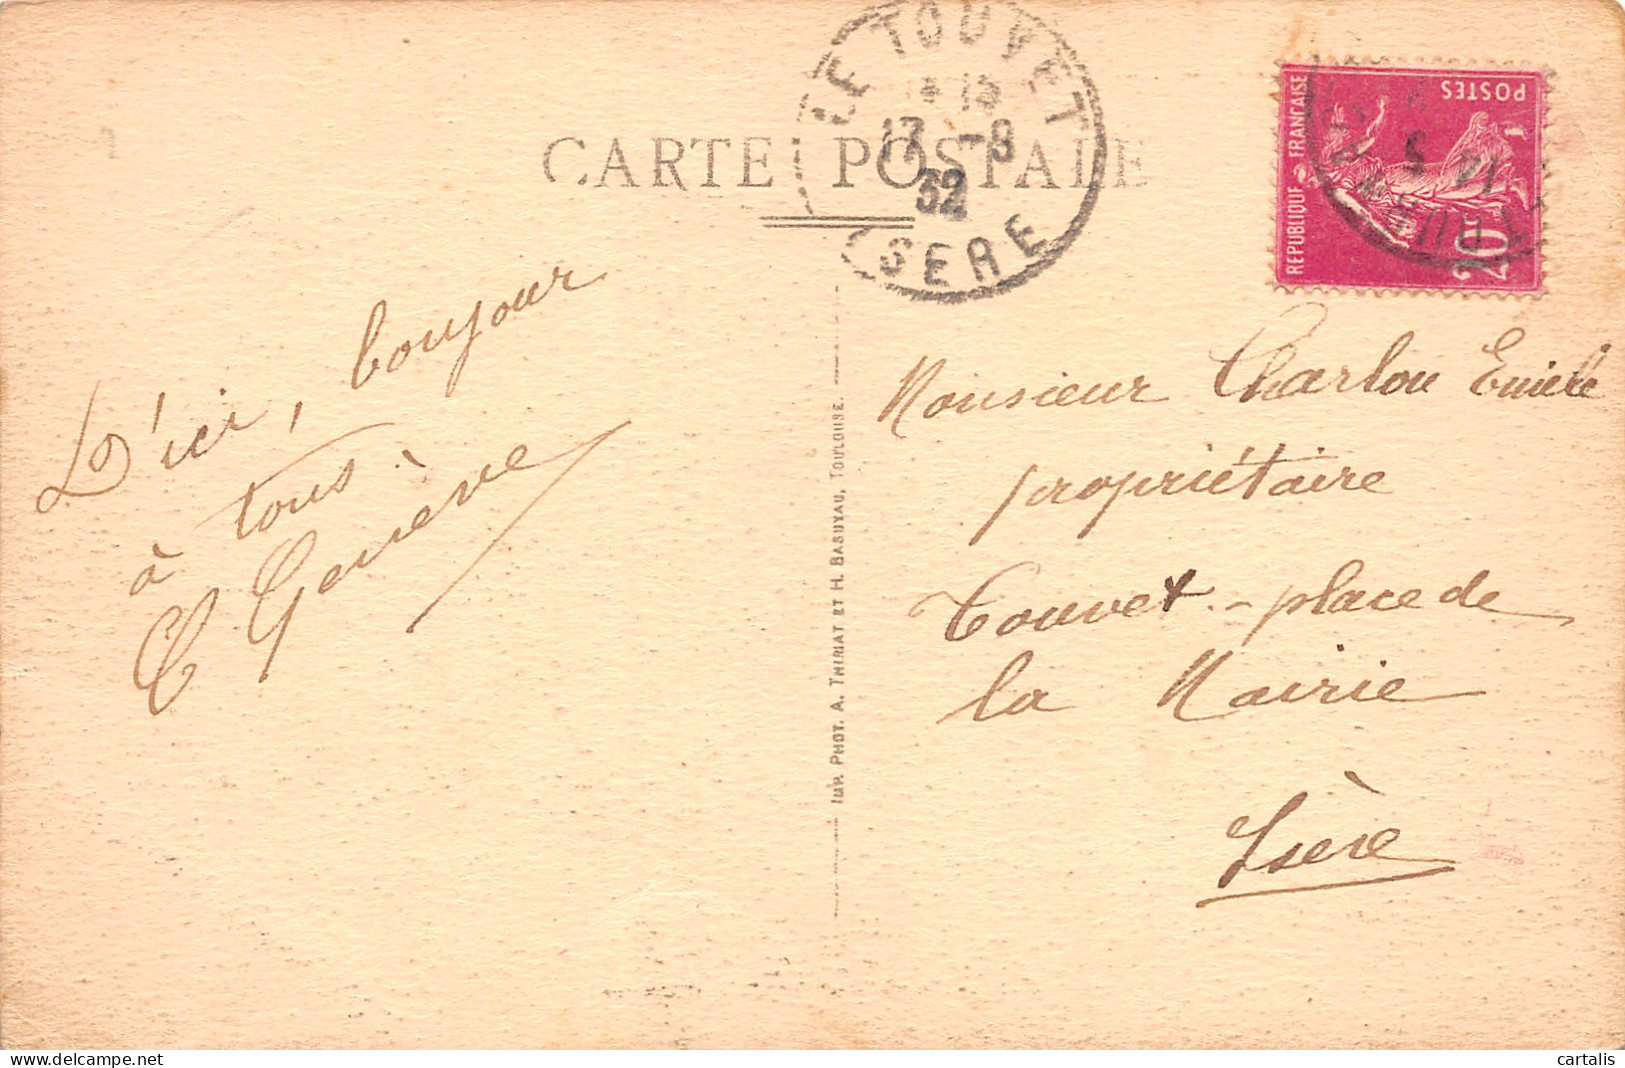 CARTE POSTALE
LE TOUVET
17 -9
32
ISERE
REPUBLIQUE FRANCAISE
POSTES
20c
D'ici, bonjour
à tous
C Geneve
IMP. PHOT. A. THIRIAT ET H. BASUYAU, TOULOUSE.
Monsieur Charlon Emile
propriétaire
Touvet - place de
la Mairie
Isère
delcampe.net
cartalis